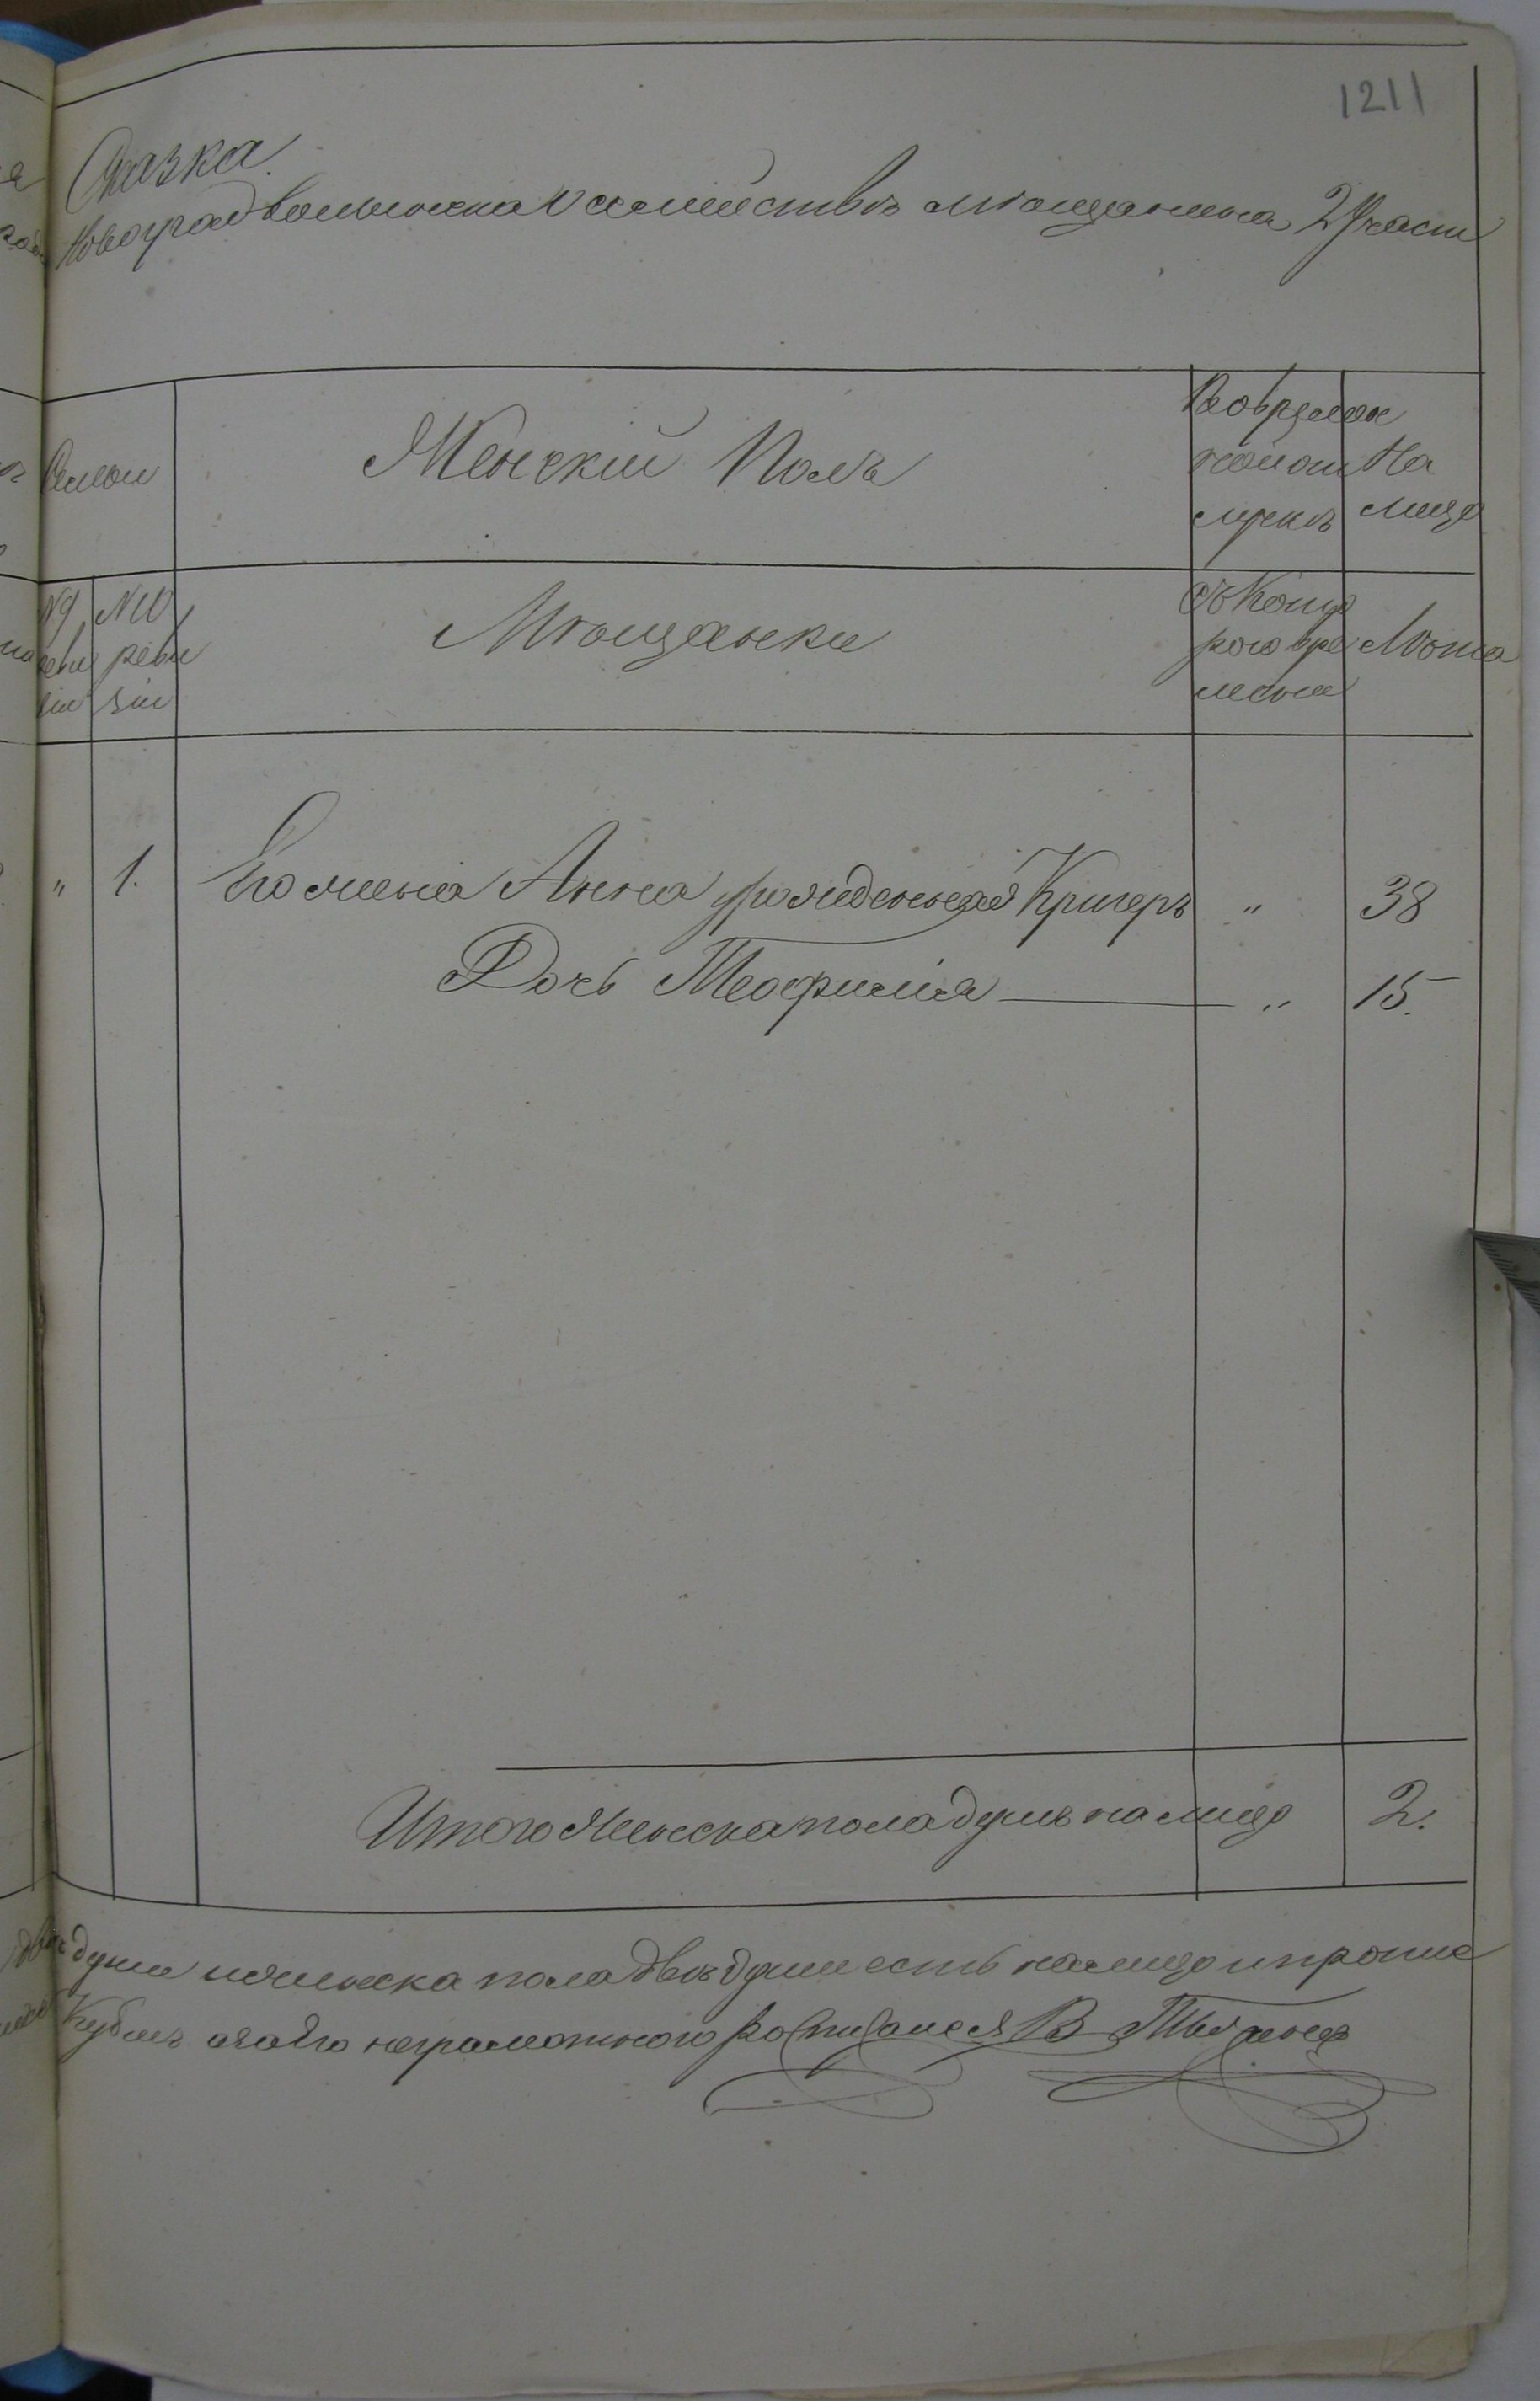 1211
Сказка
Новоградволынска и семействъ мѣщанина 2 Участ
Семьи
Женскій Полъ
Во времен
ной от
лучкѣ
На
лицо
№ 9
реви
зіи
№ 10
реви
зіи
Мѣщанки
Съ кото
рого вре
мени
Лѣта
" 1. Его жена Анна рожденная Кригеръ " 38
Дочь Теофилія " 15.
Итого женска пола душъ на лицо 2.
двѣ души и женска пола двѣ души есть на лицо и
а за его неграмотного росписался В